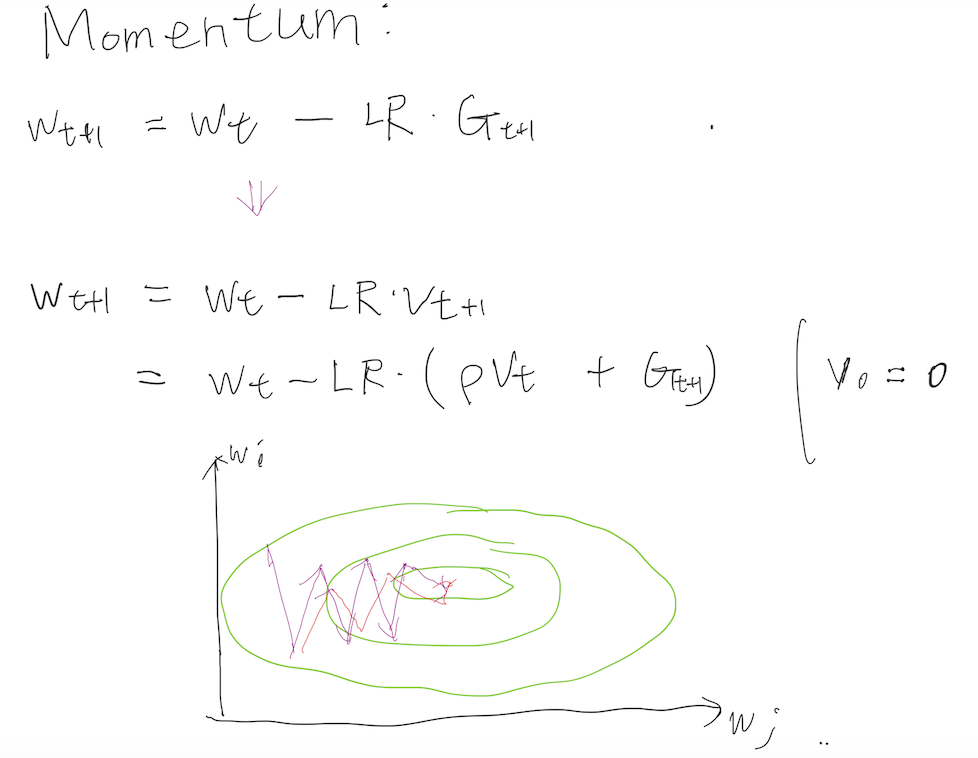 Momentum:
w_{t+1} = w_t - LR · G_{t+1}
⇓
w_{t+1} = w_t - LR · v_{t+1}
= w_t - LR · (ρ v_t + G_{t+1}) ( v_0 = 0
w_i
w_j